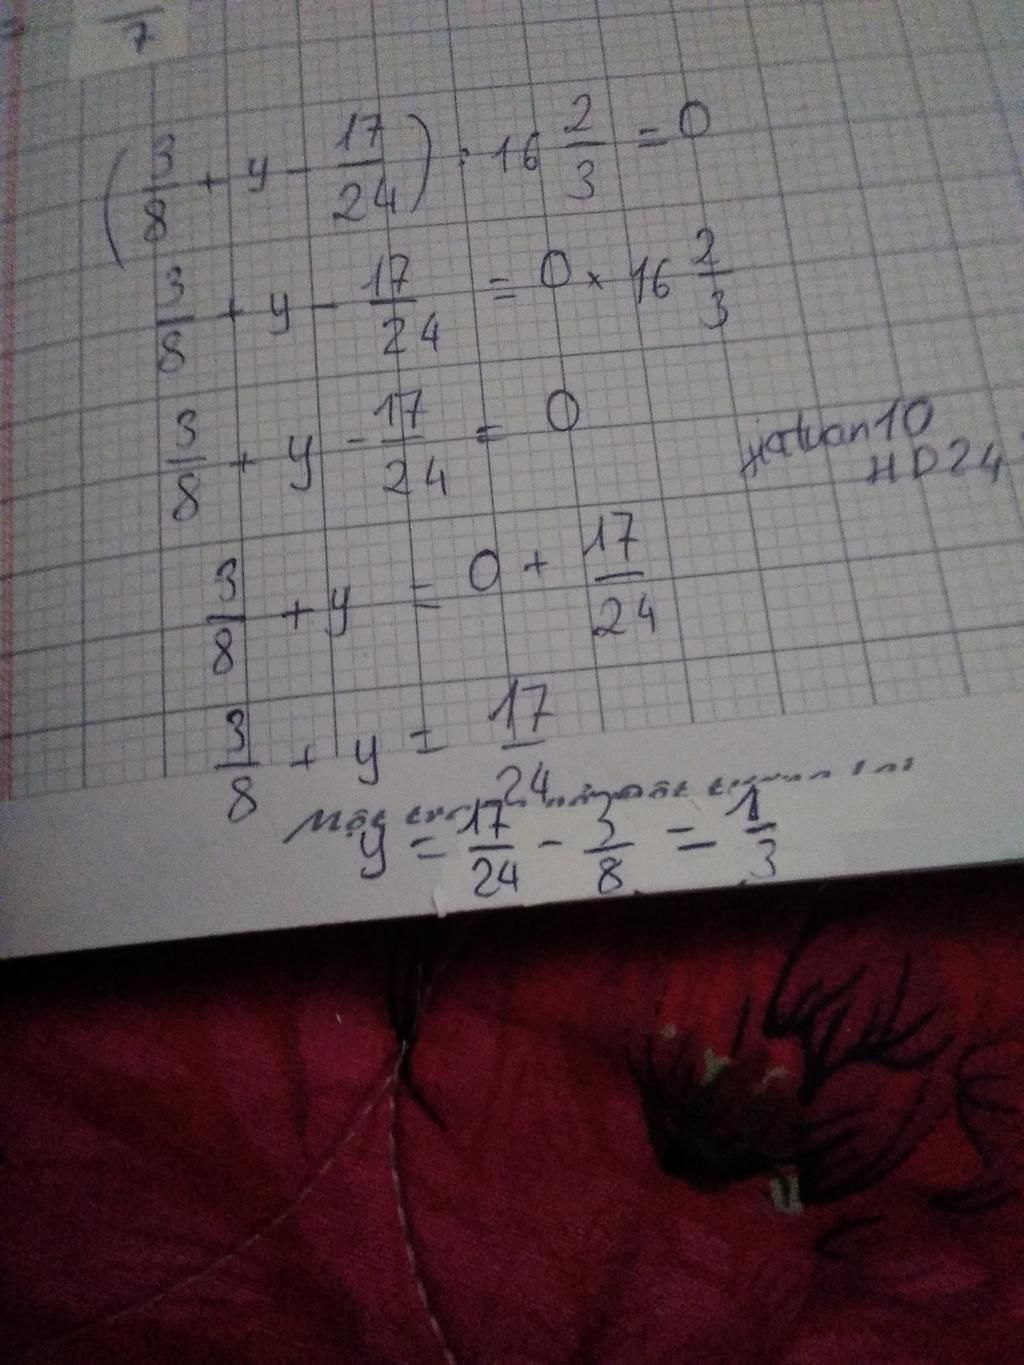 7
(3/8 + y - 17/24) : 16 2/3 = 0
3/8 + y - 17/24 = 0 × 16 2/3
3/8 + y - 17/24 = 0
hatuan10
HD24
3/8 + y = 0 + 17/24
3/8 + y = 17/24
y = 17/24 - 3/8 = 1/3